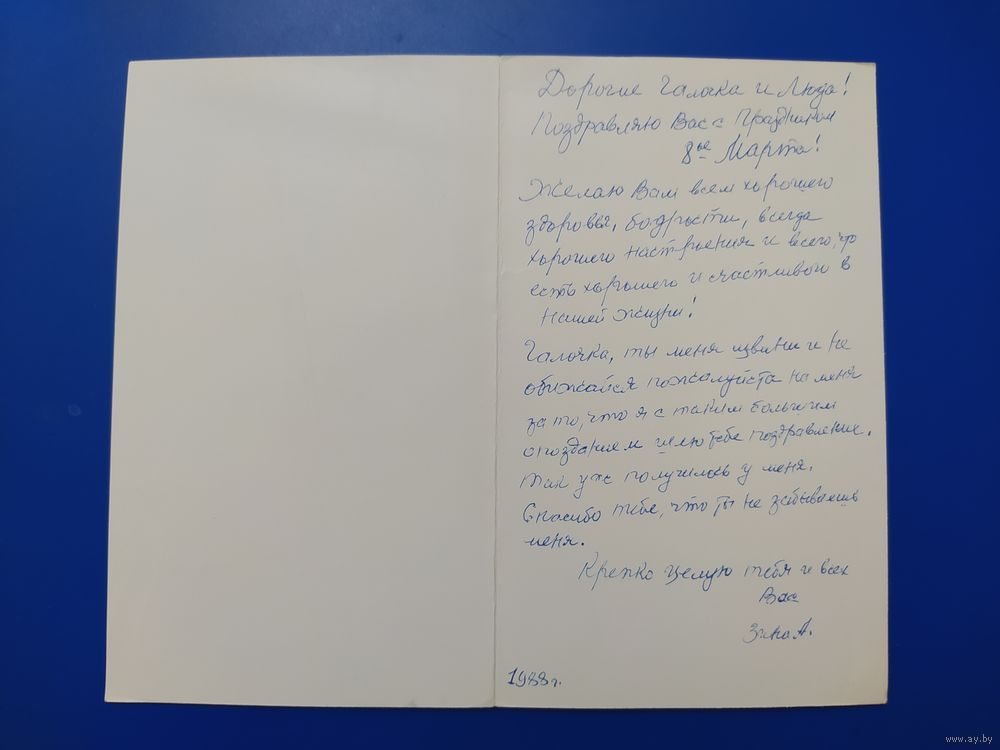 Дорогие Галочка и Люда!
Поздравляю Вас с Праздником
8ое Марта!
Желаю Вам всем хорошего
здоровья, бодрости, всегда
хорошего настроения и всего, что
есть хорошего и счастливого в
нашей жизни!
Галочка, ты меня извини и не
обижайся пожалуйста на меня
за то, что я с таким большим
опозданием шлю тебе поздравление.
Так уж получилось у меня.
Спасибо тебе, что ты не забываешь
меня.
Крепко целую тебя и всех
Вас
Зина А.
1988 г.
www.ay.by